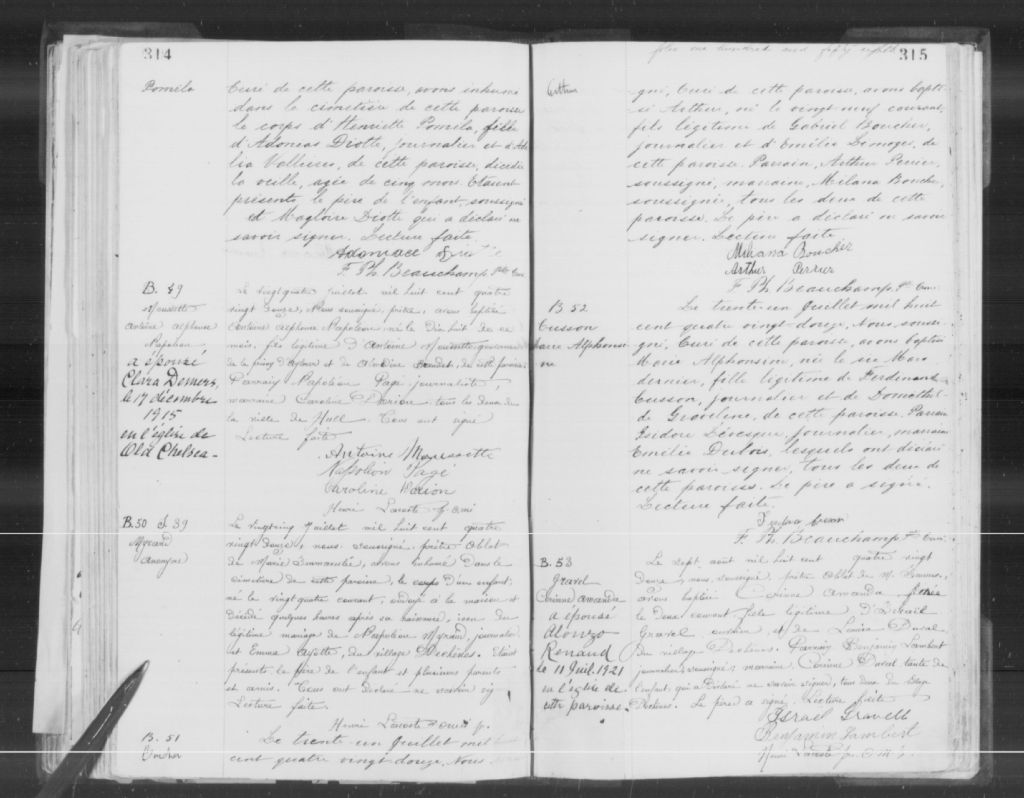 314
Pomela
Curé de cette paroisse, avons inhumé
dans le cimetière de cette paroisse
le corps d'Henriette Pomela, fille
d'Adonias Diotte, journalier et d'Adé
lia Vallières, de cette paroisse, décédée
la veille, agée de cinq mois. Etaient
présents, le père de l'enfant soussigné
et Magloire Diotte qui a déclaré ne
savoir signer. Lecture faite
F. Ph. Beauchamp, Ptre Curé
B. 49
Moussette
Antoine Alphonse
Napoléon
a épousé
Clara Demers,
le 17 décembre
1915
en l'église de
Old Chelsea -
Le vingtquatre Juillet mil huit cent quatre
vingt douze, Nous soussigné, prêtre, avons baptisé
Antoine Alphonse Napoléon né le Dix huit de ce
mois, fils légitime d'Antoine Moussette
de la prison d'Aylmer et de de cette paroisse
Parrain Napoléon Pagé journaliste,
marraine Caroline tous les deux de
la ville de Hull. Tous ont signé
Lecture faite
Antoine Moussette
Napoléon Pagé
Caroline
Henri Lacoste o.m.i.
B.50 S. 39
Myrand
Anonyme
Le vingtcinq Juillet mil huit cent quatre
vingt douze, nous soussigné, prêtre Oblat
de Marie Immaculée, avons inhumé Dans le
cimetière de cette paroisse, le corps d'un enfant,
né le vingtquatre courant, ondoyé à la maison et
décédé quelques heures après sa naissance, issu du
légitime mariage de Napoléon Myrand, journalier
et Emma Ayotte, du village Deschênes. Etaient
présents le père de l'enfant et plusieurs parents
et amis. Tous ont déclaré ne savoir sig
Lecture faite.
Henri Lacoste o.m.i. p.
B. 51
Boucher
Le trente un Juillet mil huit
cent quatre vingt douze, Nous
folio one hundred and fifty eighth
315
Arthur
gné, Curé de cette paroisse, avons bapti-
sé Arthur, né le vingt neuf courant,
fils légitime de Gabriel Boucher,
journalier et d'Emilie Limoges, de
cette paroisse. Parrain, Arthur Perrier,
soussigné, marraine, Milana Boucher,
soussignée, tous les deux de cette
paroisse. Le père a déclaré ne savoir
signer. Lecture faite
Milana Boucher
Arthur Perrier
F. Ph. Beauchamp, Ptre Curé
B. 52
Cusson
Marie Alphonsi
ne
Le trente un Juillet mil huit
cent quatre vingt-douze, Nous, soussi-
gné, Curé de cette paroisse, avons baptisé
Marie Alphonsine, née le six Mars
dernier, fille légitime de Ferdinand
Cusson, journalier et de Domothil-
de Graveline, de cette paroisse. Parrain
Isidore Lévesque, journalier, marraine
Emilie Dubois, lesquels ont déclaré
ne savoir signer, tous les deux de
cette paroisse. Le père a signé.
Lecture faite.
F. Ph. Beauchamp, Ptre Curé
B. 53
Gravel
Corinne Amanda
a épousé
Alonzo
Renaud
le 11 Juil. 1921
en l'église de
cette paroisse.
Le sept août mil huit cent quatre vingt
Douze, nous, soussigné, prêtre Oblat de M. Immac.,
avons baptisé Corinne Amanda née
le Deux courant fille légitime d'Israël
Gravel et de Louise Duval
du village Deschenes. Parrain Benjamin Lambert
journalier, soussigné; marraine Corinne Duval tante de
l'enfant, qui a déclaré ne savoir signer, tous deux du village
Deschenes. Le père a signé. Lecture faite
Israel Gravell
Benjamin Lambert
Henri Lacoste ptr. o.m.i.